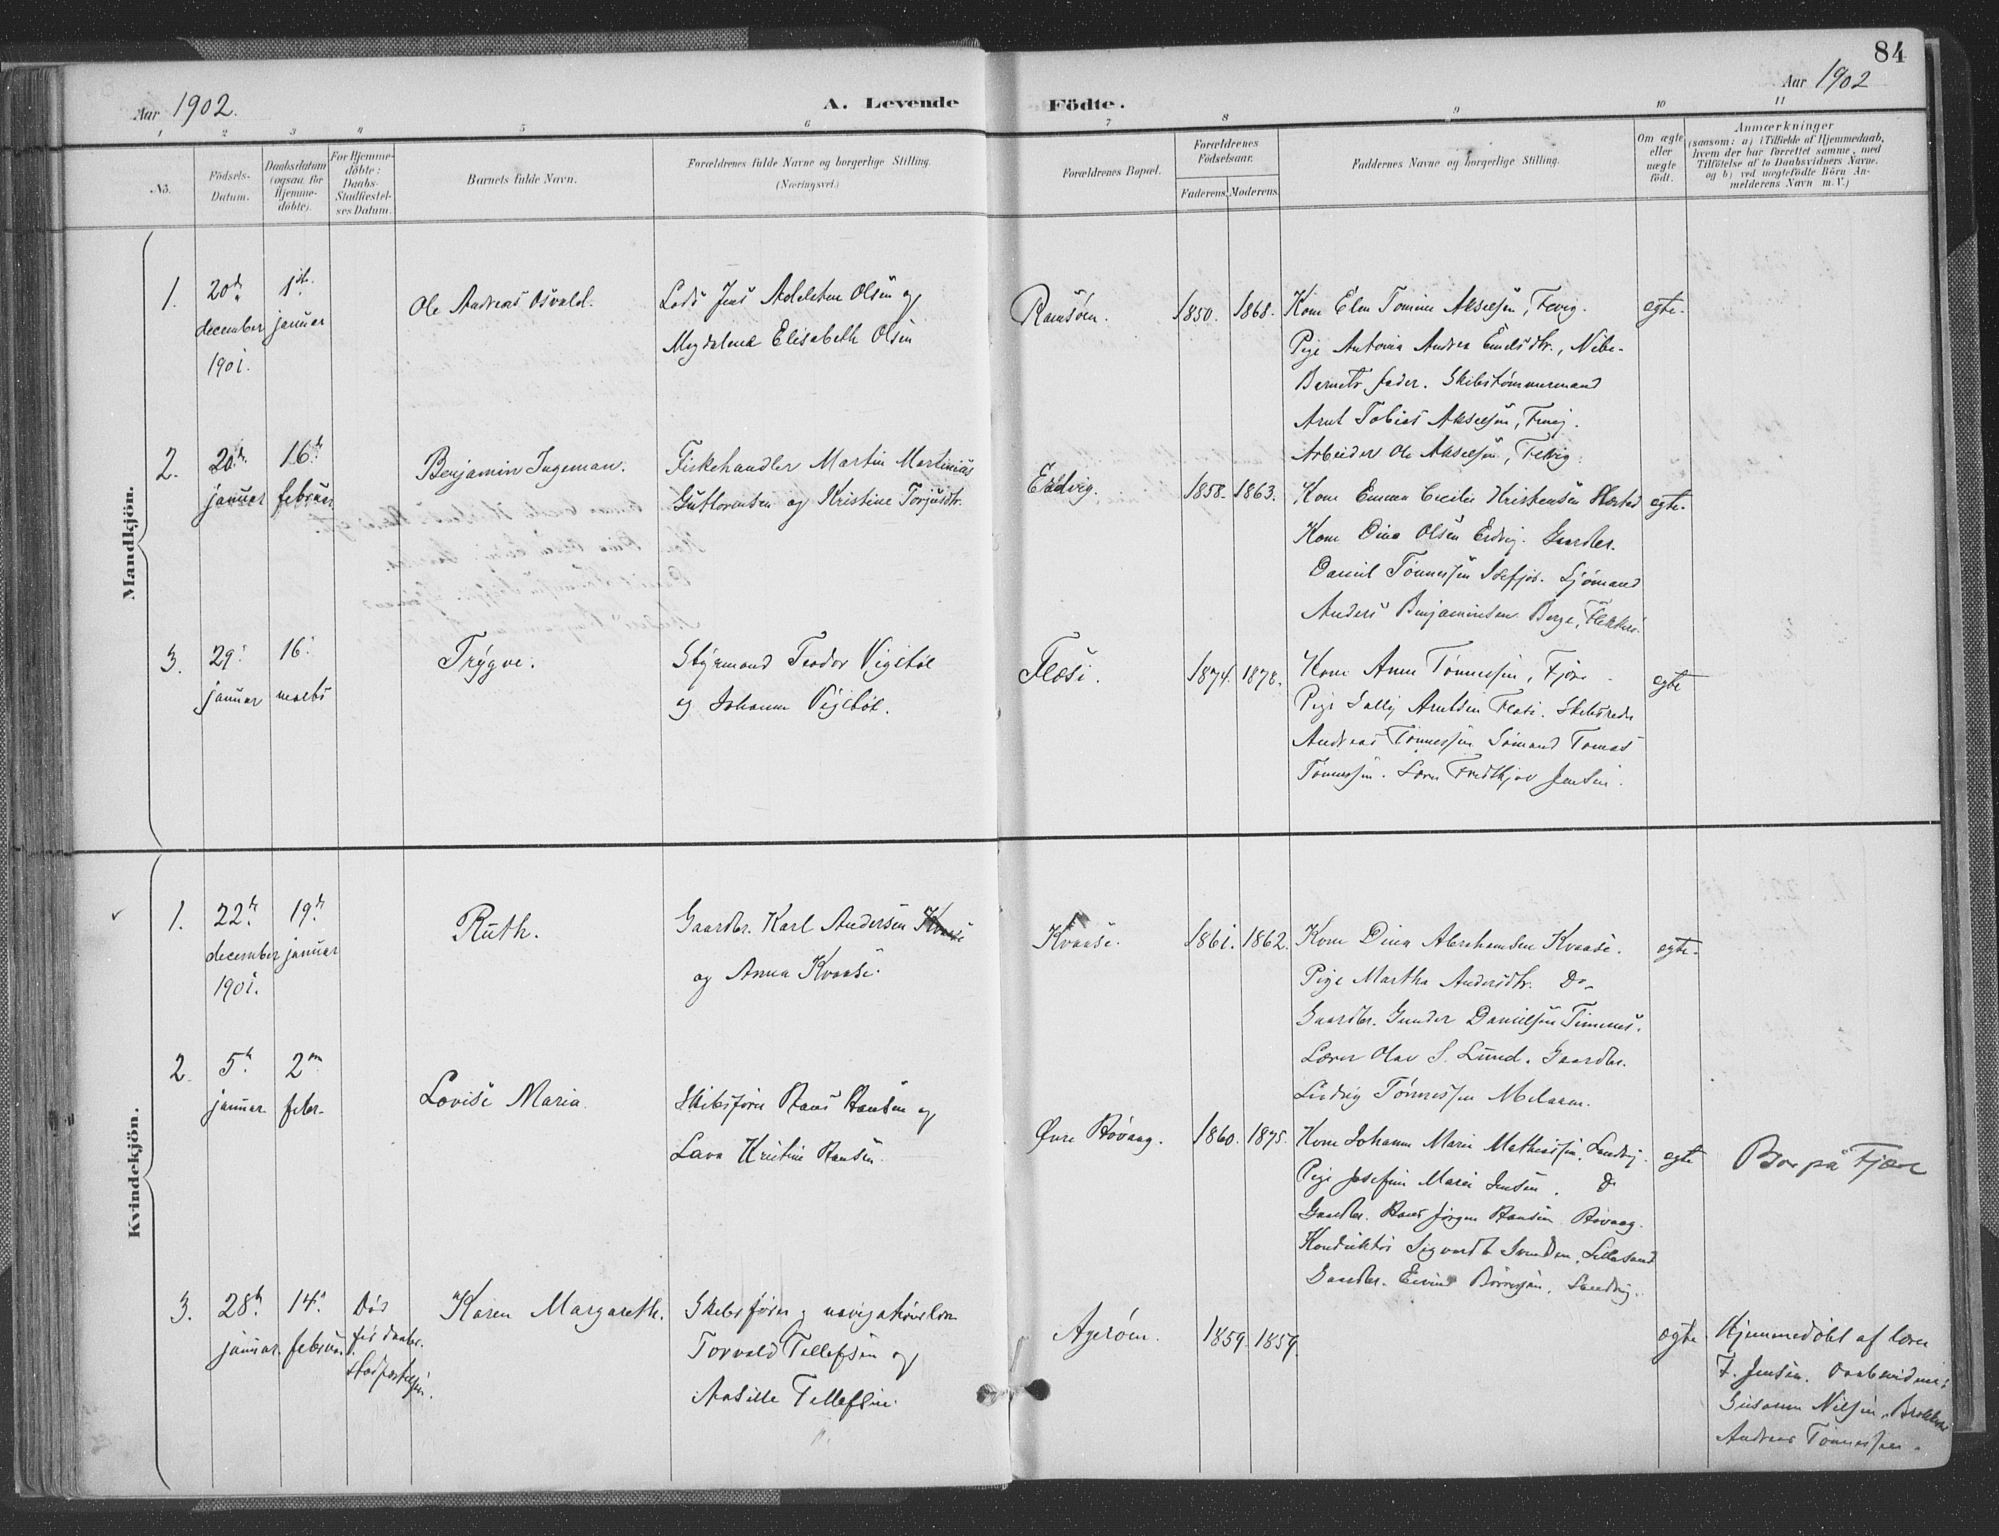 84
Aar 1902.
A. Levende Födte.
Aar 1902
1 2 3 4 5 6 7 8 9 10 11
No.
Födsels-Datum.
Daabsdatum (ogsaa for Hjemme-döbte).
For Hjemme-döbte: Daabs-Stadfæstel-ses Datum.
Barnets fulde Navn.
Forældrenes fulde Navne og borgerlige Stilling.
(Næringsvei.)
Forældrenes Bopæl.
Forældrenes Födselsaar.
Faderens. Moderens.
Faddernes Navne og borgerlige Stilling.
Om ægte eller uægte födt.
Anmærkninger
(saasom: a) i Tilfælde af Hjemmedaab,
hvem der har forrettet samme, med
Tilföielse af to Daabsvidners Navne.
og b) ved uægtefödte Börn An-
melderens Navn m. V.)
Mandkjön.
1. 20de december 1901. 1ste januar
Ole Andreas Osvald.
Lods Jens Adelsten Olsen og
Magdalena Elisabeth Olsen
Ramsøen. 1850. 1868.
Kone Elen Tomine Akselsen, Fevig.
Pige Antonia Andrea Emilsdtr., Nibe.
Barnets fader. Skibstømmermand
Arnt Tobias Akselsen, Fevig.
Arbeider Ole Akselsen, Fevig.
egte.
2. 20de januar 16de februar
Benjamin Ingeman.
Fiskehandler Martin Martinius
Guttormsen og Kristine Torjusdtr.
Eidvig. 1858. 1863.
Kone Emma Cecilie Kristensen
Kone Dina Olsen Eidvig. Gaardbr.
Daniel Tønnessen Sjømand
Anders Benjaminsen Berge, Flekkerø.
egte.
3. 29. januar 16. marts
Trygve.
Styrmand Teodor Vigeböe
og Johanne Vigeböe.
Flæsi. 1874. 1878.
Kone Anna Tønnessen, Fjøre
Pige Sally Arntsen Flæsi. Skibsreder
Andreas Tønnessen Sømand Tomas
Tønnessen. Lærer Fredthjov Jensen.
egte
Kvindekjön.
1. 22de december 1901. 19de januar
Ruth.
Gaardbr. Karl Andersen Kvaase
og Anna Kvaase.
Kvaase. 1861. 1862.
Kone Dina Abrahamsen Kvaase.
Pige Martha Andersdtr. Do.
Gaardbr. Gunder Danielsen Timenes.
Lærer Olav S. Lund. Gaardbr.
Ludvig Tønnessen
egte.
2. 5te januar 2den febr.
Lovise Maria.
Skibsfører Hans Hansen og
Lava Kristine Hansen.
Øvre Høvaag. 1860. 1875.
Kone Johanne Marie Mathiassen, Sandvig.
Pige Josefine Marie Jensen. Do
Gaardbr. Hans Jørgen Hansen Høvaag.
Konduktør Sigvardt Svendsen, Lillesand
Gaardbr. Eivind Børresen, Sandvig.
egte
Bor på Fjære
3. 28de januar. 14de februar
Død før daabs-stadfæstelsen.
Karen Margareth.
Skibsfører og navigationslærer
Torvald Tellefsen og
Aasille Tellefsen.
Agerøen. 1859. 1859.
egte
Hjemmedøbt af lærer
F. Jensen. Daabsvidner:
Susanne Nilsen, Brekkestø
Andreas Tønnessen.